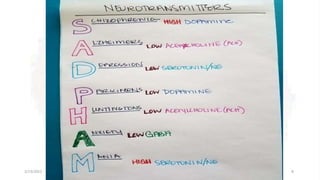 NEUROTRANSMITTERS
SCHIZOPHRENIA HIGH DOPAMINE
ALZHEIMERS LOW ACETYLCHOLINE (ACh)
DEPRESSION LOW SEROTONIN/NE
PARKINSONS LOW DOPAMINE
HUNTINGTONS LOW ACETYLCHOLINE (ACH)
ANXIETY LOW GABA
MANIA HIGH SEROTONIN/NE